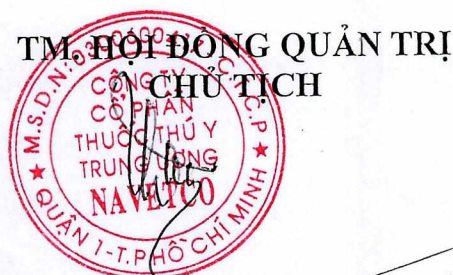 TM. HỘI ĐỒNG QUẢN TRỊ
CHỦ TỊCH
M.S.D.N:
C.T.C.P
CÔNG TY
CỔ PHẦN
THUỐC THÚ Y
TRUNG ƯƠNG
NAVETCO
QUẬN 1-T.P HỒ CHÍ MINH